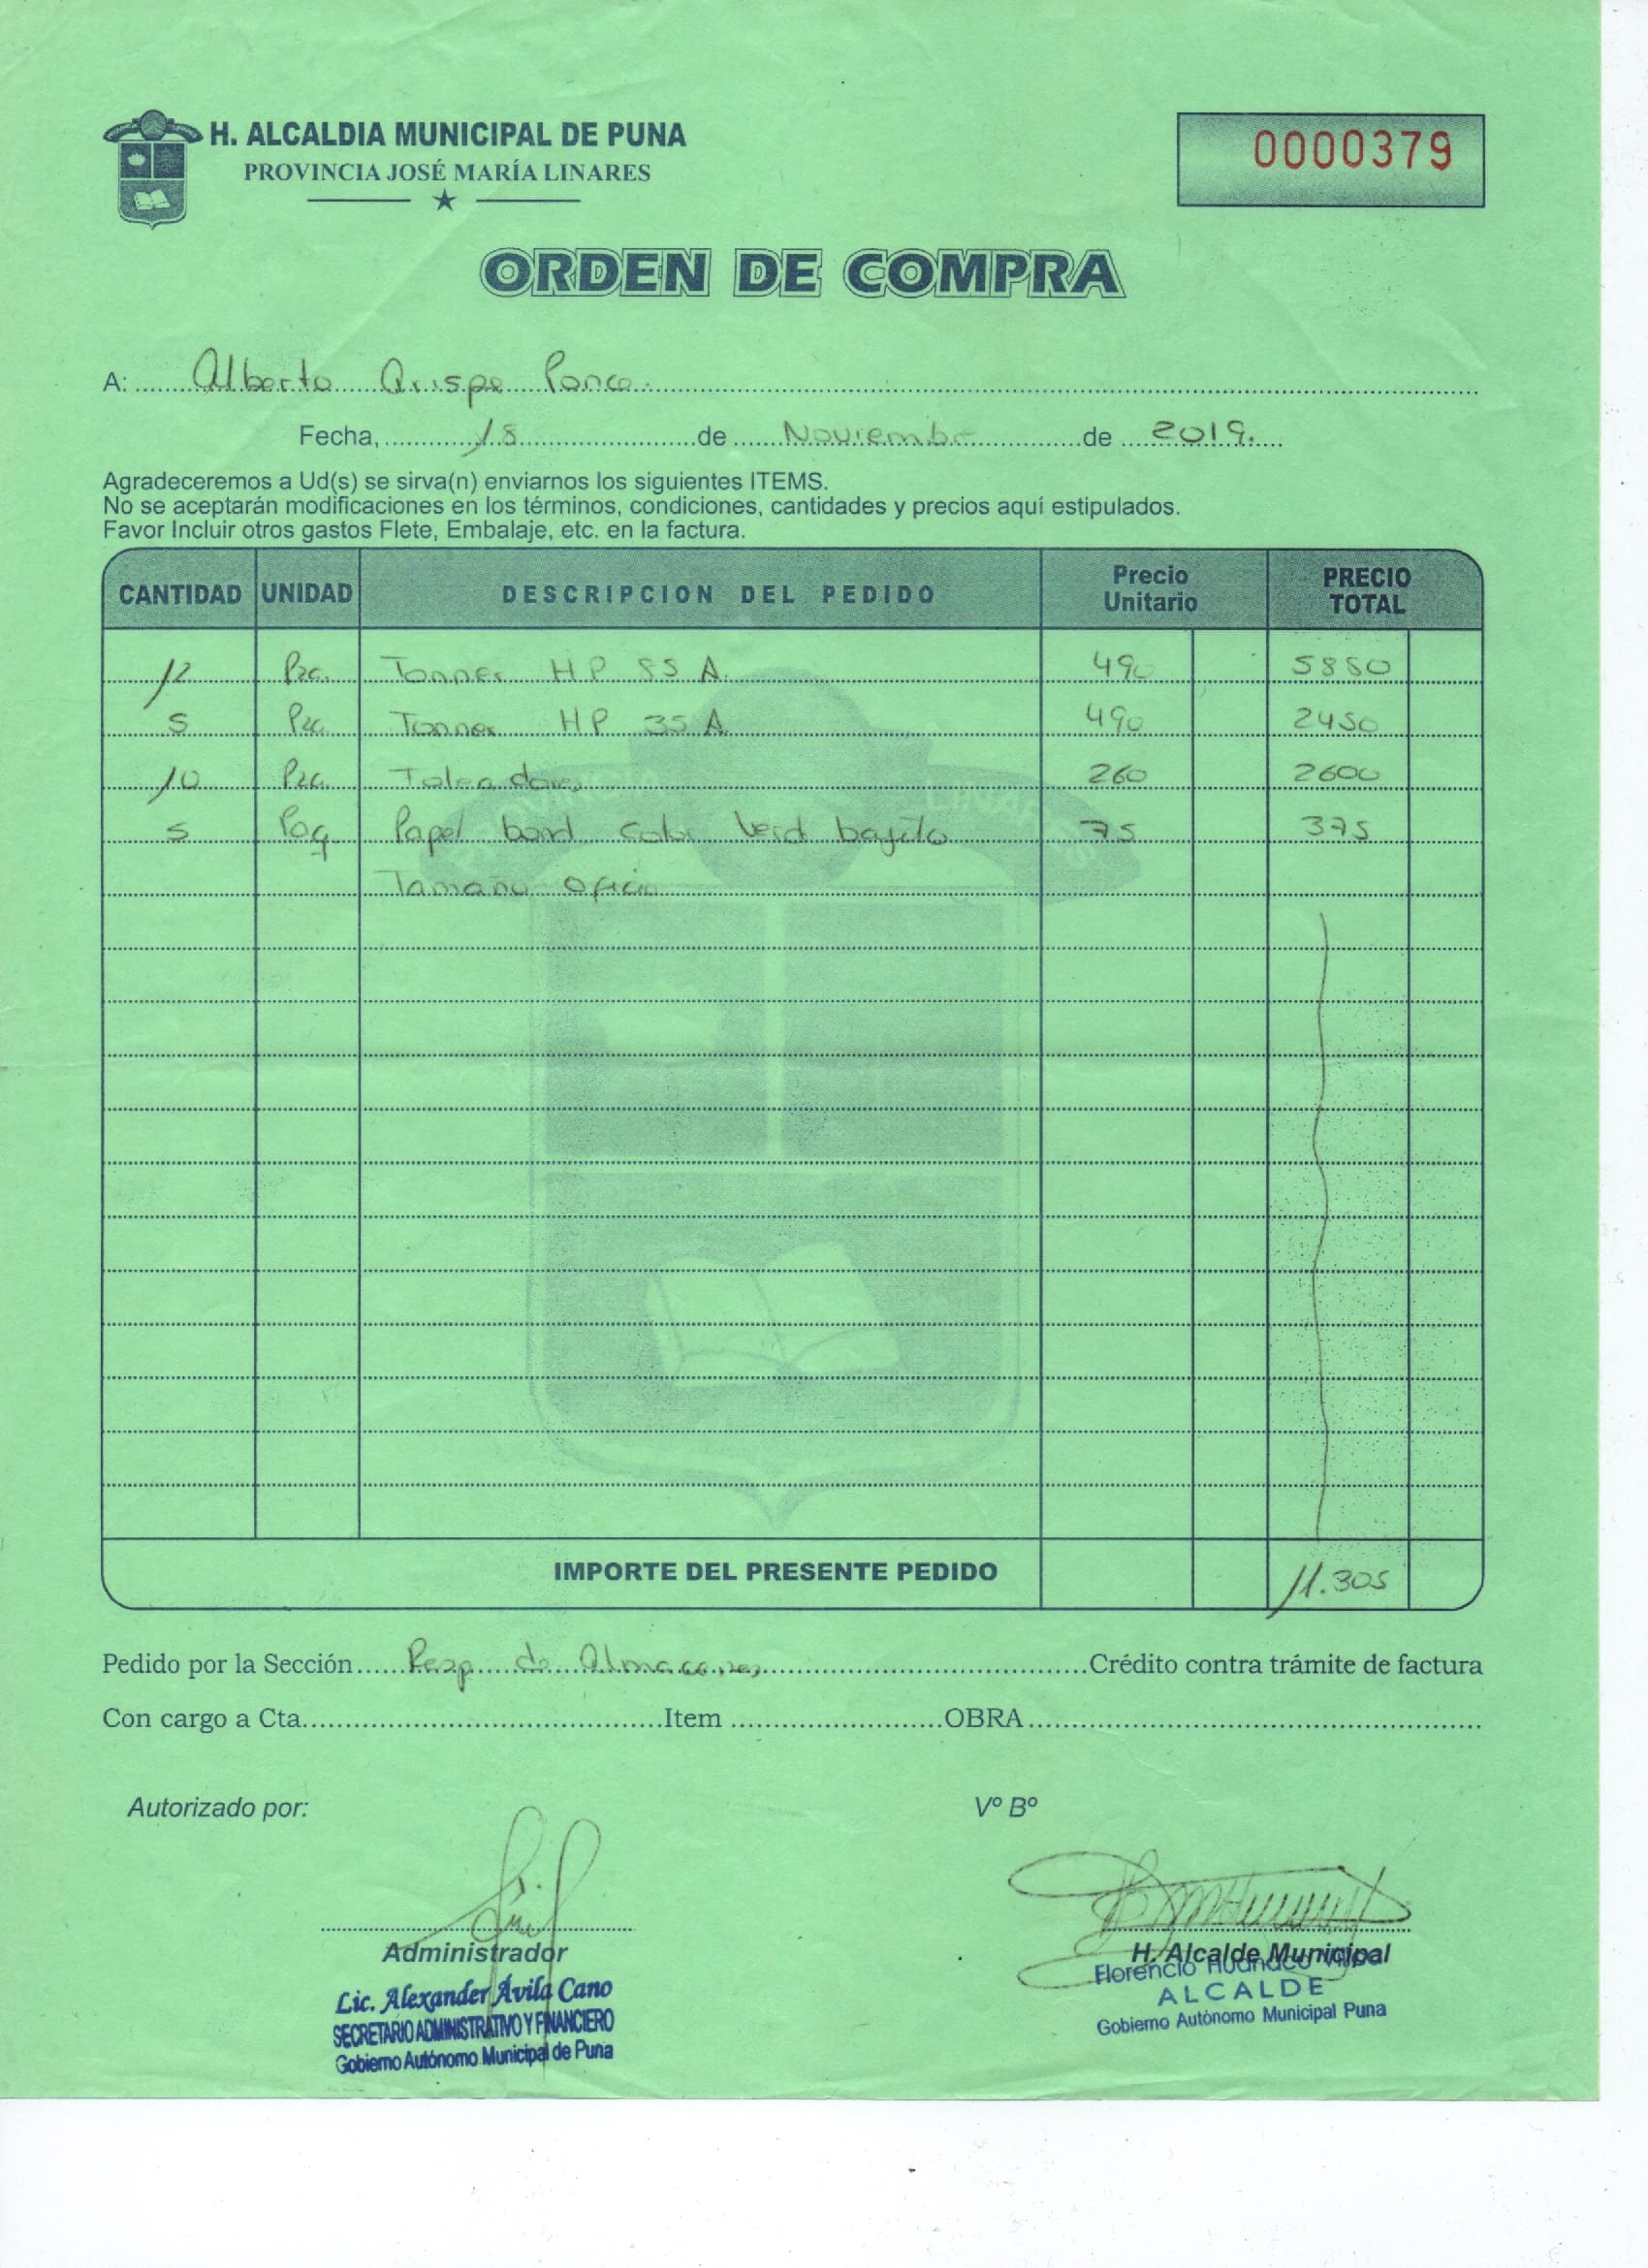 H. ALCALDIA MUNICIPAL DE PUNA
PROVINCIA JOSÉ MARÍA LINARES
0000379
ORDEN DE COMPRA
A: Alberto Crispe Ponce.
Fecha, 18 de Noviembre de 2019.
Agradeceremos a Ud(s) se sirva(n) enviarnos los siguientes ITEMS.
No se aceptarán modificaciones en los términos, condiciones, cantidades y precios aquí estipulados.
Favor Incluir otros gastos Flete, Embalaje, etc. en la factura.
CANTIDAD UNIDAD DESCRIPCION DEL PEDIDO Precio Unitario PRECIO TOTAL
12 Pza. Tonner HP 85 A. 490 5880
5 Pza. Tonner HP 35 A 490 2450
10 Pza. 260 2600
5 Paq Papel bond color Verd bajito 75 375
Tamaño Oficio
IMPORTE DEL PRESENTE PEDIDO 11.305
Pedido por la Sección Resp. de Almacenes Crédito contra trámite de factura
Con cargo a Cta. Item OBRA
Autorizado por: Vº Bº
Administrador H. Alcalde Municipal
Lic. Alexander Ávila Cano
SECRETARIO ADMINISTRATIVO Y FINANCIERO
Gobierno Autónomo Municipal de Puna
Florencio Huanaco
ALCALDE
Gobierno Autónomo Municipal Puna